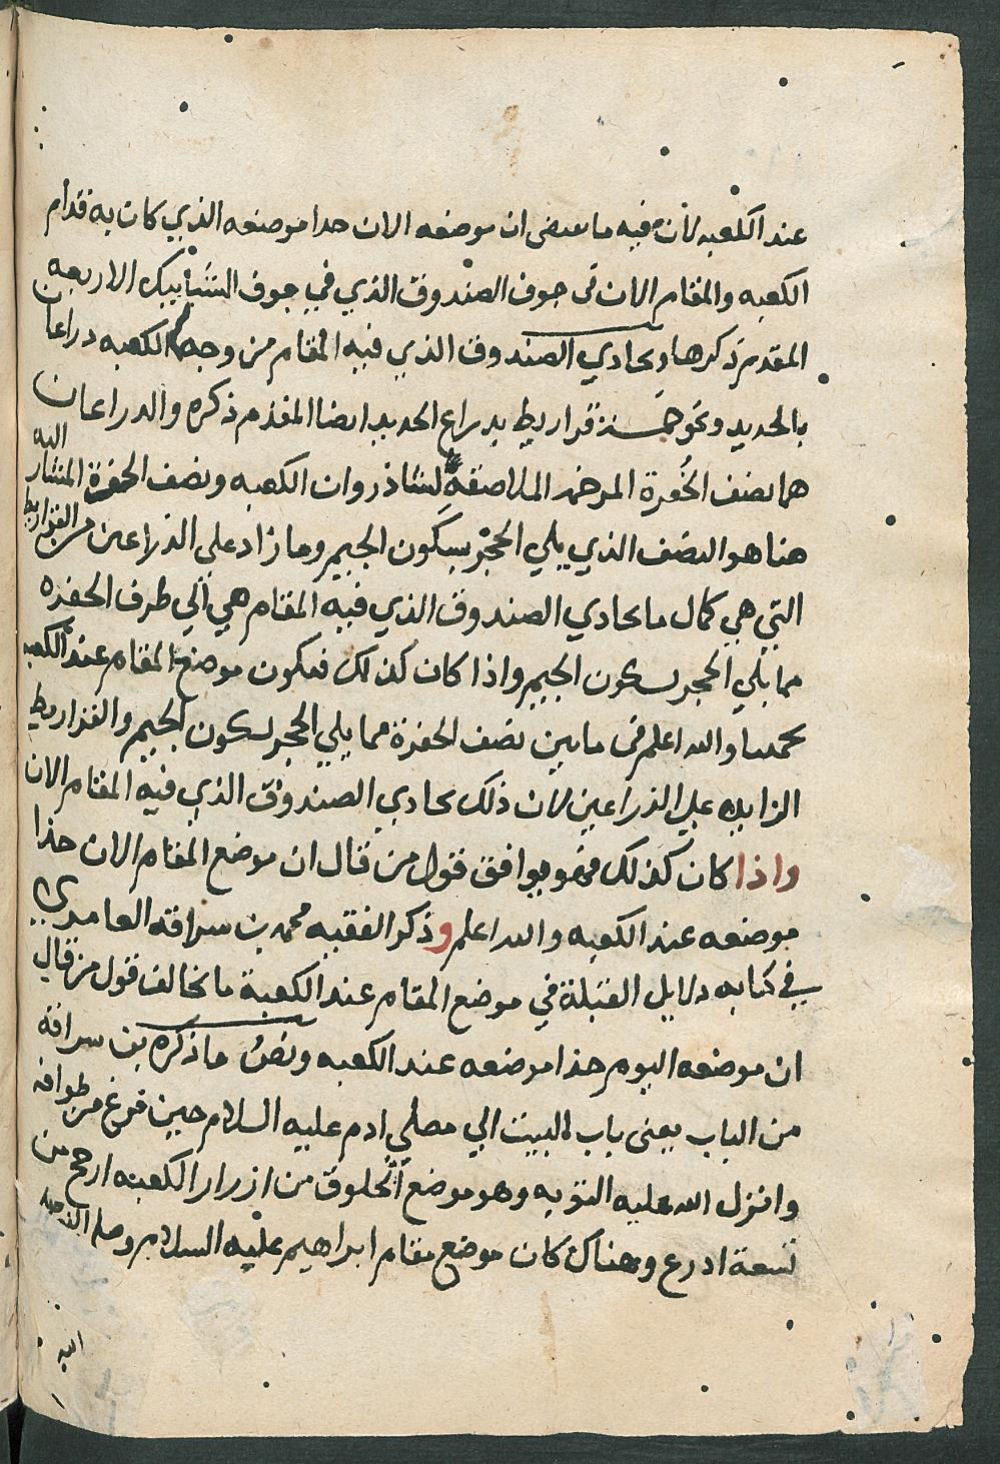 عند الكعبه لان فيه ما يقتضى ان موضعه الان حذا موضعه الذي كان به قدام
الكعبه والمقام الان فى جوف الصندوق الذي في جوف الشبابيك الاربعه
المقدم ذكرها ويحاذي الصندوق الذي فيه المقام من وجه الكعبه دراعان
بالحديد ونحو خمسة قراريط بدراع الحديد ايضا المقدم ذكره والدراعان
هما نصف الحفرة المرخمه الملاصقة لشاذروان الكعبه ونصف الحفرة المشار اليه
هنا هو النصف الذي يلي الحجر بسكون الجيم وما زاد على الذراعين من القراريط
التي هي كمال ما يحاذي الصندوق الذي فيه المقام هي الي طرف الحفره
مما يلي الحجر بسكون الجيم واذا كان كذلك فيكون موضع المقام عند الكعبه
تخمينا والله اعلم فى ما بين نصف الحفرة مما يلي الحجر بسكون الجيم والقزاريط
الزايده على الذراعين لان ذلك يحاذي الصندوق الذي فيه المقام الان
واذا كان كذلك فهو يوافق قول من قال ان موضع المقام الان حذا
موضعه عند الكعبه والله اعلم وذكر الفقيه محمد بن سراقة العامري
في كتابه دلايل القبلة في موضع المقام عند الكعبة ما يخالف قول من قال
ان موضعه اليوم حذا موضعه عند الكعبه ونص ما ذكره بن سراقة
من الباب يعنى باب البيت الي مصلي ادم عليه السلام حين فرغ من طوافه
وانزل الله عليه التوبه وهو موضع الخلوق من ازرار الكعبه ارجح من
تسعة ادرع وهناك كان موضع مقام ابراهيم عليه السلام وصلى النبي